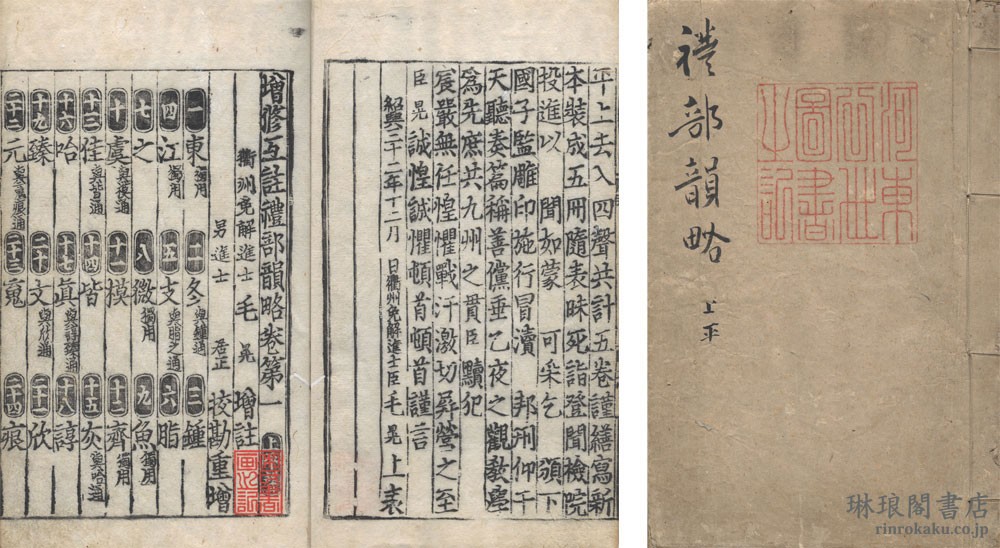 禮部韻略 上平
平上去入四聲共計五卷謹繕寫新
本裝成五冊隨表昧死詣登聞檢院
投進以 聞如蒙 可采乞 頒下
國子監雕印施行冒瀆 邦刑仰干
天聽奏篇稱善儻垂乙夜之觀敎塵
爲先庶共九州之貫臣黷犯
宸嚴無任惶懼戰汗激切屏營之至
臣晃誠惶誠懼頓首頓首謹言
紹興三十二年十二月 日衢州免解進士臣毛晃上表
增修互註禮部韻略卷第一
衢州免解進士毛晃 增註
男進士 居正 校勘重增
一東獨用 二冬與鍾通 三鍾
四江獨用 五支與脂之通 六脂
七之 八微獨用 九魚獨用
十虞與模通 十一模 十二齊獨用
十三佳與皆通 十四皆 十五灰與咍通
十六咍 十七眞與諄臻通 十八諄
十九臻 二十文與欣通 二十一欣
二十二元與䰟痕通 二十三䰟 二十四痕
琳琅閣書店
rinrokaku.co.jp